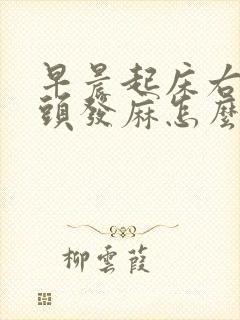 早晨起床右
頭發麻怎麼
柳雲葭